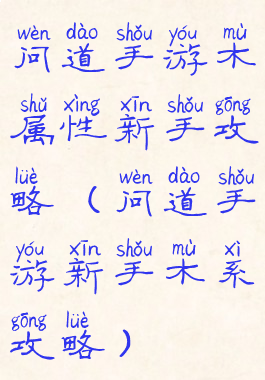 wèn dào shǒu yóu mù
问道手游木
shǔ xìng xīn shǒu gōng
属性新手攻
lüè wèn dào shǒu
略（问道手
yóu xīn shǒu mù xì
游新手木系
gōng lüè
攻略）